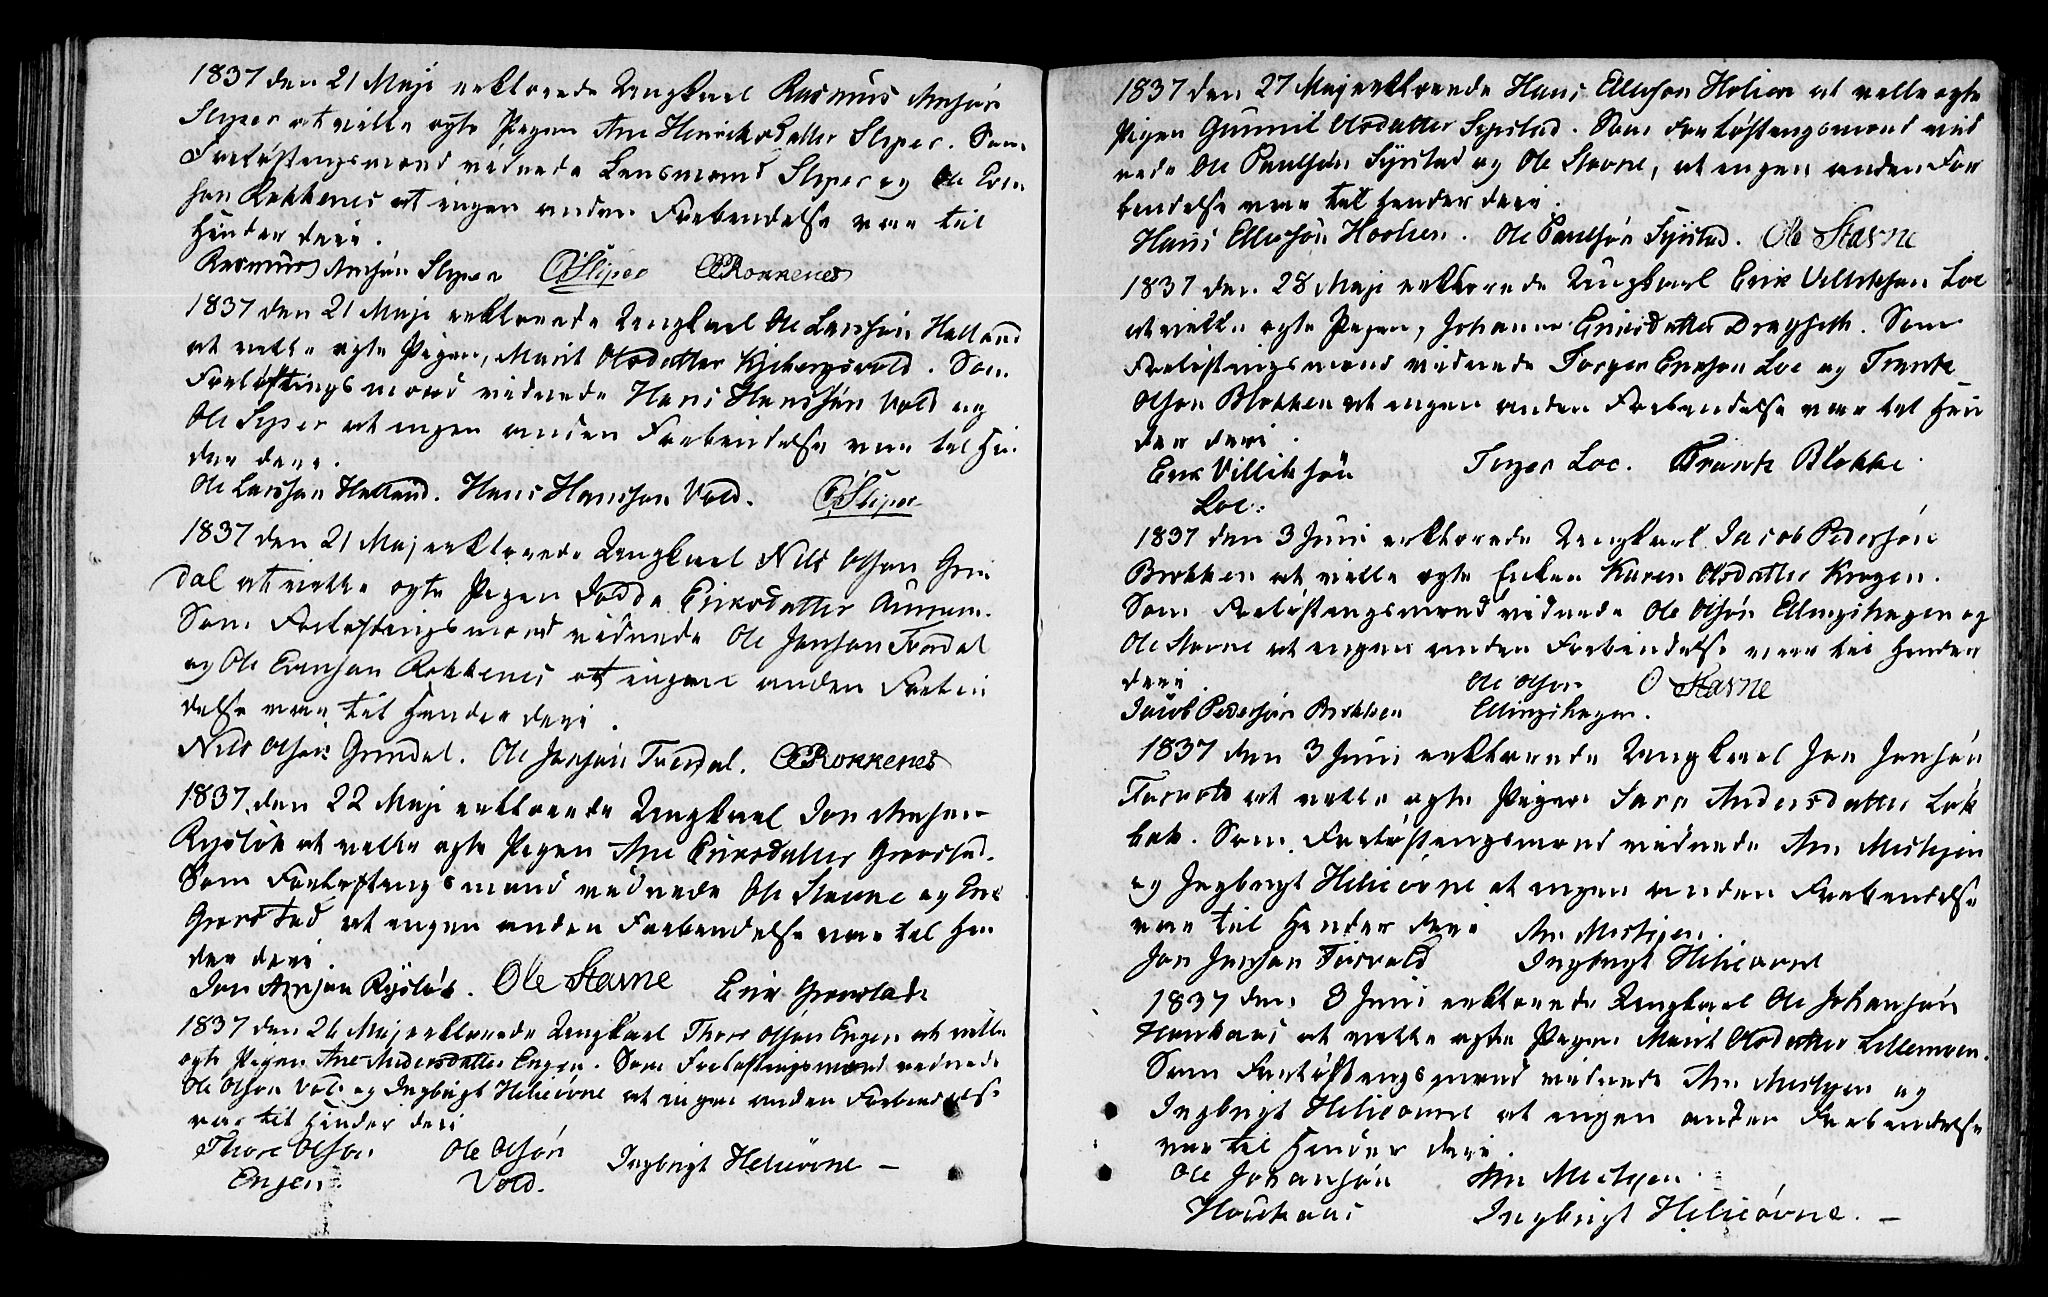 1837 den 21 Maji erklærede Ungkarl Rasmus Arnsøn
Sliper at ville ægte Pigen Ane Henriksdatter Sliper. Som
Forløftningsmænd vidnede Lensmand Sliper og Ole Even
søn Rokkenes at ingen anden Forbindelse var til
Hinder deri.
Rasmus Arnsøn Sliper OSliper OERokkenes
1837 den 21 Maji erklærede Ungkarl Ole Larssøn Helland
at ville ægte Pigen, Marit Olsdatter. Som
Forløftningsmænd vidnede Hans Hanssøn Vold og
Ole Sliper at ingen anden Forbindelse var til Hin
der deri.
Ole Larsson Helland. Hans Hansson Vold. OSliper
1837 den 21 Maj erklærede Ungkarl Nils Olson Grin
dal at ville ægte Pigen Eriksdatter Aunem.
Som Forløftningsmænd vidnede Ole Jonson Trondal
og Ole Evenson Rokkenes at ingen anden Forbin
delse var til Hinder deri.
Nils Olsøn Grindal. Ole Jonsøn Trondal. OERokkenes
1837 den 22 Maji erklærede Ungkarl Jon Arnson
at ville ægte Pigen Ane Eriksdatter Grorstad.
Som Forløftningsmænd vidnede Ole Stavne og Erik
Grorstad at ingen anden Forbindelse var til Hin
der deri.
Jon Arnson. Ole Stavne Erik Grorstad
1837 den 26 Maj erklærede Ungkarl Thore Olsøn Engen at ville
ægte Pigen Ane Andersdatter Engen. Som Forløftningsmænd vidnede
Ole Olson Vold og Ingbrigt Helieovne at ingen anden Forbindelse
var til Hinder deri
Thore Olson Ole Olsøn Ingbrigt Helieovne –
Engen. Vold.
1837 den 27 Maj erklærede Hans Ellevson at ville ægte
Pigen Gunnil Olsdatter Syrstad. Som Forløftningsmænd vid
nede Ole Paulsøn Syrstad og Ole Stavne, at ingen anden For
bindelse var til Hinder deri.
Hans Ellevsøn. Ole Paulsøn Syrstad. Ole Stavne
1837 den 28 Maji erklærede Ungkarl Erik Villikson Loe
at ville ægte Pigen, Johanne Eriksdatter Dragseth. Som
Forløftningsmænd vidnede Torger Erikson Loe og Trønk
Olson Blokken at ingen anden Forbindelse var til Hin
der deri.
Erik Villiksøn Torger Loe. Trønk Blokke.
Loe.
1837 den 3 Juni erklærede Ungkarl Jacob Pedersøn
Brekken at ville ægte Enken Karen Olsdatter Krogen.
Som Forløftningsmænd vidnede Ole Olsøn Ellingshagen og
Ole Stavne at ingen anden Forbindelse var til Hinder
deri. Ole Olson O Stavne
Jacob Pedersøn Brekken Ellingshagen.
1837 den 3 Juni erklærede Ungkarl Jon Jonsøn
at ville ægte Pigen Sara Andersdatter Løk
bak. Som Forløftningsmænd vidnede Arn Meslijen
og Ingbrigt Helieovne at ingen anden Forbindelse
var til Hinder deri Arn Meslijen.
Jon Jonson Ingbrigt Helieovne
1837 den 3 Juni erklærede Ungkarl Ole Johansøn
Houkaas at ville ægte Pigen Marit Olsdatter Lillemoen.
Som Forløftningsmænd vidnede Arn Meslijen og
Ingbrigt Helieovne at ingen anden Forbindelse
var til Hinder deri.
Ole Johansøn Arn Meslijen.
Houkaas Ingbrigt Helieovne. –